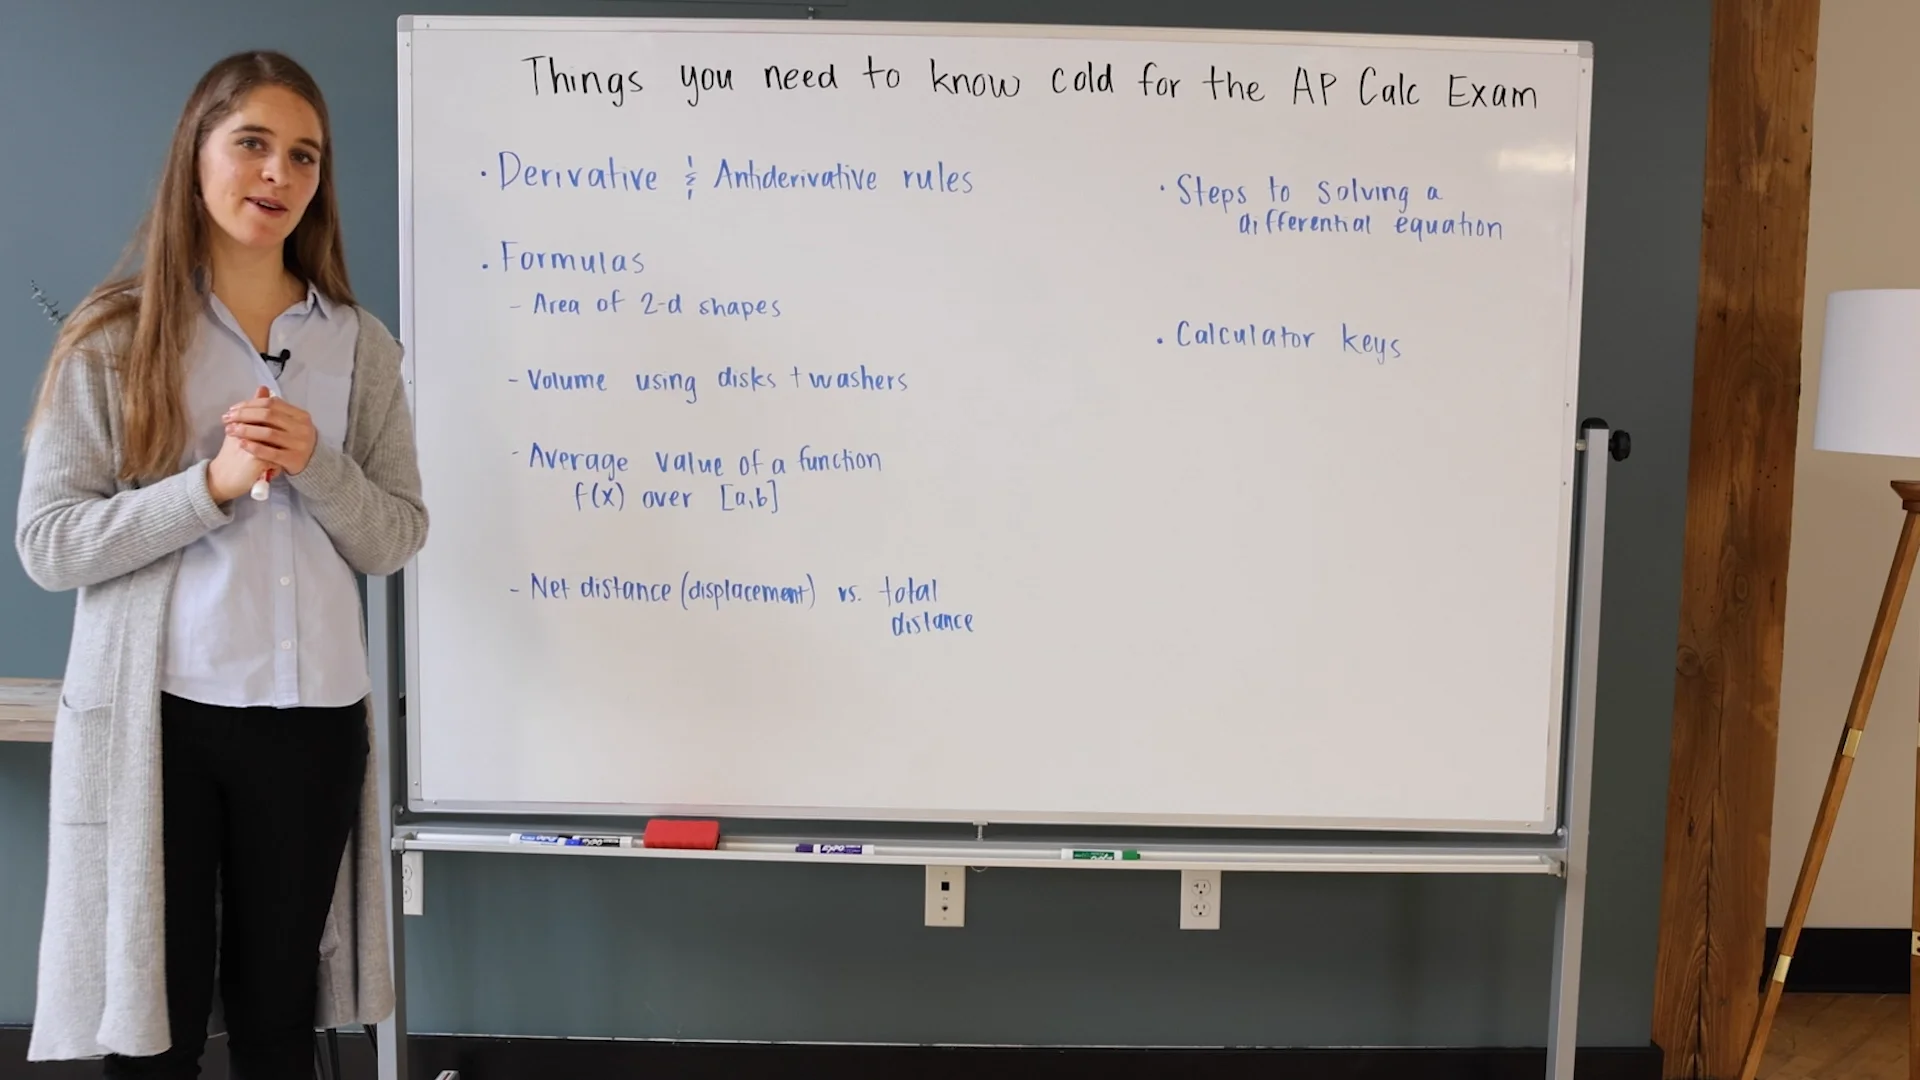 Things you need to know cold for the AP Calc Exam
· Derivative & Antiderivative rules
· Formulas
- Area of 2-d shapes
- Volume using disks + washers
- Average value of a function
f(x) over [a,b]
- Net distance (displacement) vs. total
distance
· Steps to solving a
differential equation
· Calculator keys
EXPO
EXPO